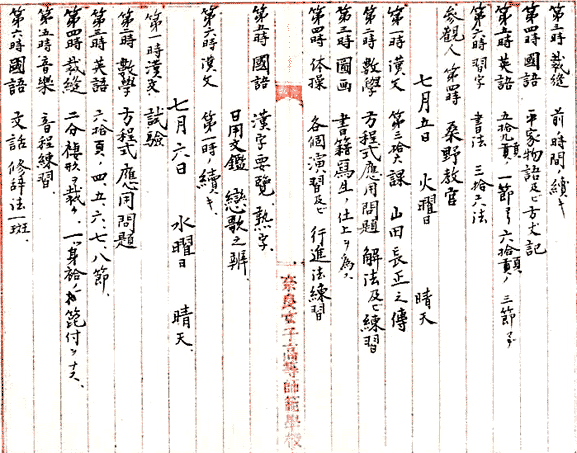 第三時 裁縫 前ノ時間ノ續キ
第四時 國語 平家物語及ビ方丈記
第五時 英語 五拾九頁、一節ヨリ六拾頁ノ三節マデ
第六時 習字 書法 三拾六法
参觀人 第四時 桑野教官
七月五日 火曜日 晴天
第一時 漢文 第三拾六課 山田長正之傳
第二時 數學 方程式應用問題 解法及ビ練習
第三時 圖画 書籍寫生ノ仕上ヲ為ス
第四時 体操 各個演習及ビ行進法練習
第五時 國語 漢字要覧 熟字
日用文鑑 戀歌之辨
第六時 漢文 第一時ノ續キ
七月六日 水曜日 晴天
第一時 漢文 試驗
第二時 數學 方程式應用問題
第三時 英語 六拾頁、四、五、六、七、八節
第四時 裁縫 二分雛形ヲ裁ツ、一ツ身袷ノ箆付ヲナス
第五時 音樂 音程練習
第六時 國語 文話 修辞法一斑
奈良女子高等師範學校